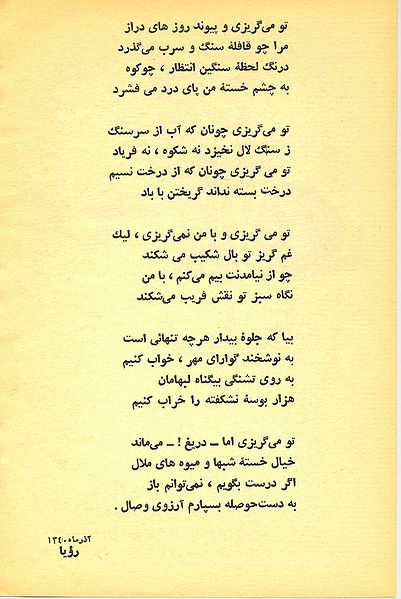 تو می‌گریزی و پیوند روز های دراز
مرا چو قافلهٔ سنگ و سرب می‌گذرد
درنگ لحظهٔ سنگین انتظار ، چوکوه
به چشم خستهٔ من پای درد می فشرد
تو می‌گریزی چونان که آب از سرسنگ
ز سنگ لال نخیزد نه شکوه ، نه فریاد
تو می گریزی چونان که از درخت نسیم
درخت بسته نداند گریختن با باد
تو می گریزی و با من نمی‌گریزی ، لیك
غم گریز تو بال شکیب می شکند
چو از نیامدنت بیم می‌کنم ، با من
نگاه سبز تو نقش فریب می‌شکند
بیا که جلوهٔ بیدار هرچه تنهائی است
به نوشخند گوارای مهر ، خواب کنیم
به روی تشنگی بیگناه لبهامان
هزار بوسهٔ نشکفته را خراب کنیم
تو می‌گریزی اما ــ دریغ ! ــ می‌ماند
خیال خستهٔ شبها و میوه های ملال
اگر درست بگویم ، نمی‌توانم باز
به دست‌حوصله بسپارم آرزوی وصال .
آذرماه ۱۳٤۰
رؤیا